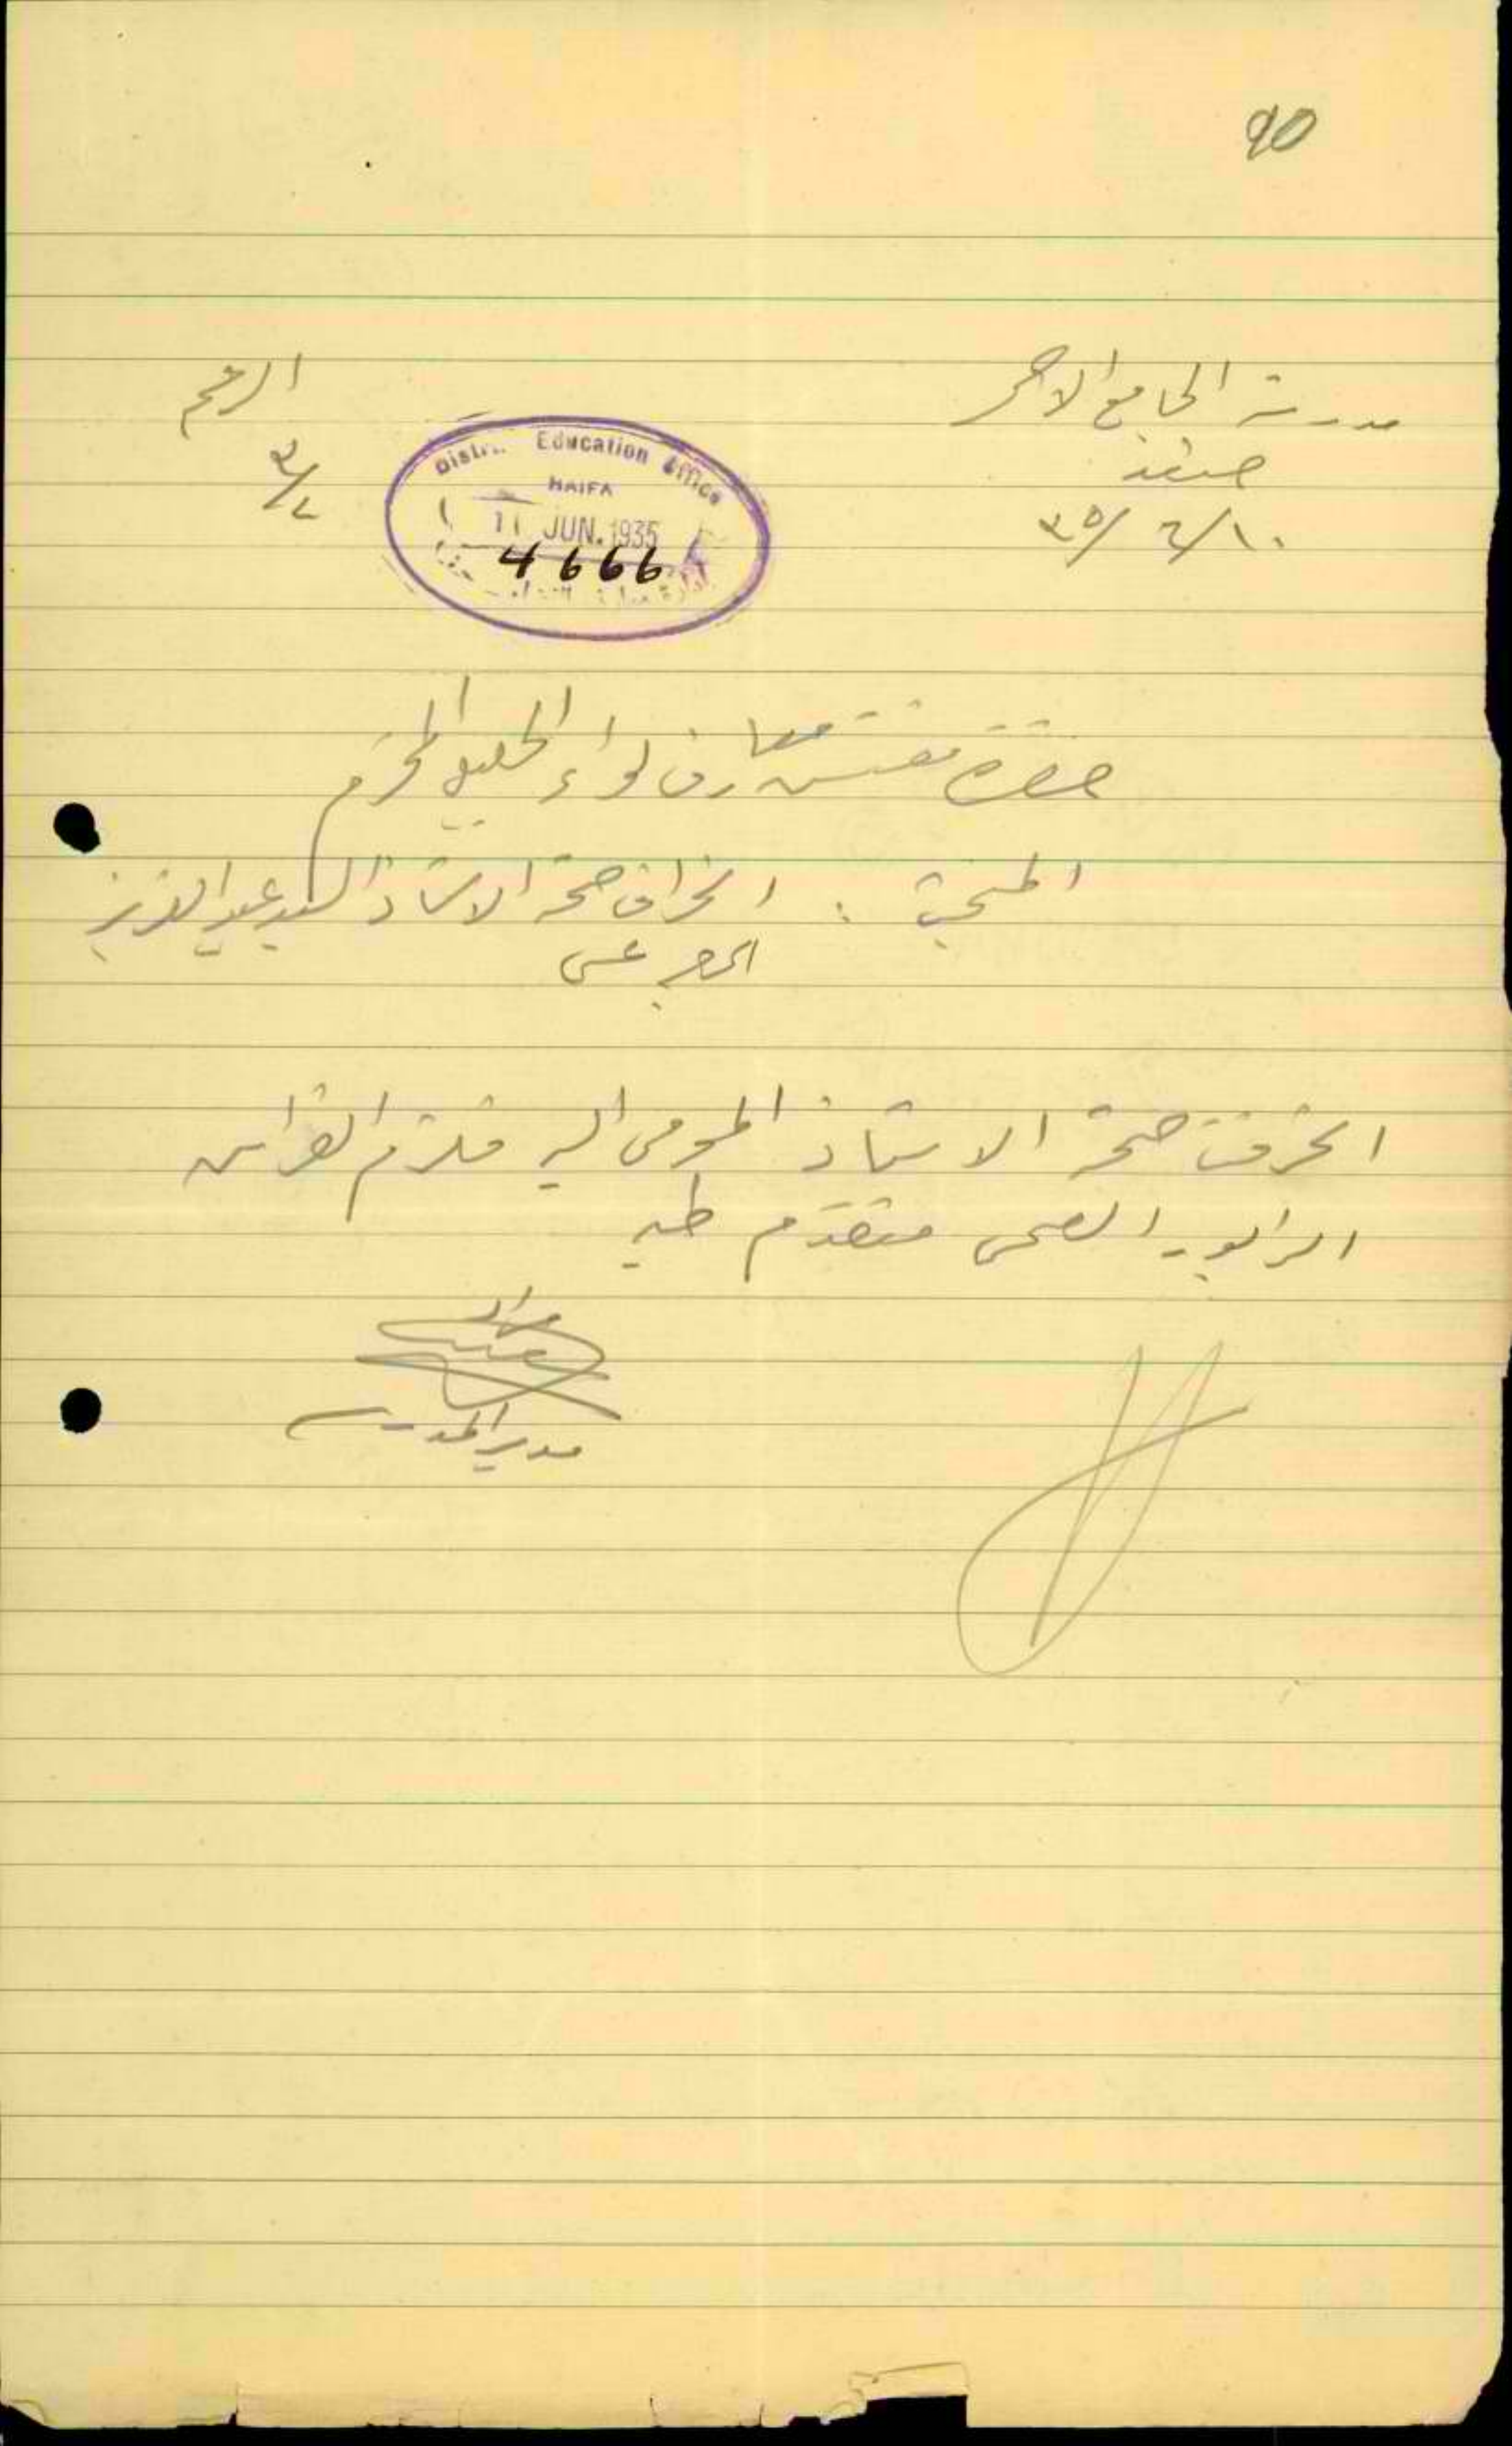 90
مدرسة الجامع الاحمر
صفد
١٠/٦/٣٥
الرقم
٣/٧
District Education Office
HAIFA
11 JUN. 1935
4666
حضرة مفتش معارف لواء الجليل المحترم
المبحث : انحراف صحة الاستاذ السيد عبد العزيز
انحرفت صحة الاستاذ المومى اليه فلزم الفراش
الرابور الصحي متقدم طيه
مدير المدرسة